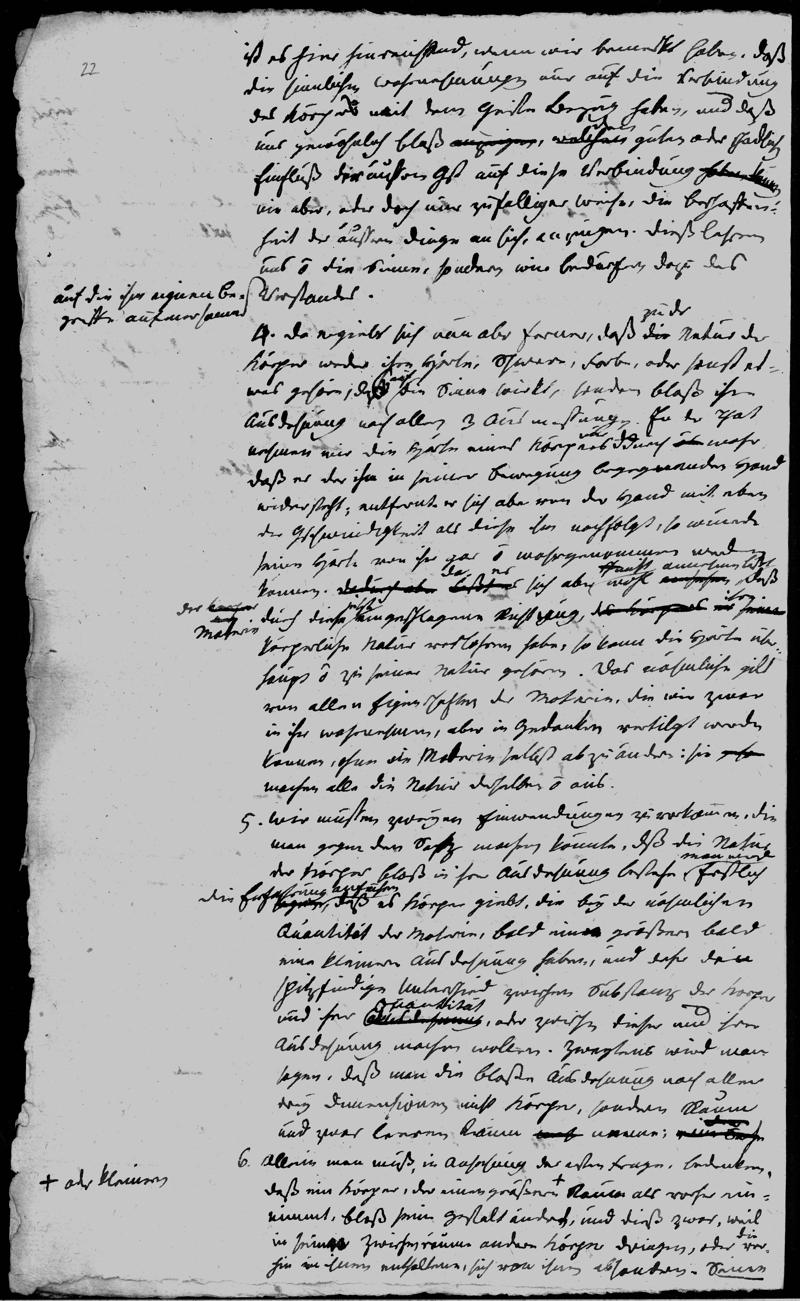 22
ist es hier hinreichend, wenn wir bemerkt haben, daß
die sinnlichen wahrnehmungen nur auf die Verbindung
des Körpers mit dem Geiste Bezug haben, und daß
uns gewöhnlich bloß anzeigen, welchen guten oder schädlich
Einfluß die äussern Gst auf diese Verbindung haben können
nie aber, oder doch nur zufälliger weise, die beschaffen-
heit der äussern dinge an sich, anzeigen. dieß lehren
uns ō die Sinne, sondern wir bedürfen dazu des
auf die ihm eignen be-
griffe aufmerksamen
Verstandes.
zu der
4. da ergiebt sich nun aber ferner, daß die Natur der
Körper weder ihre Härte, Schwere, Farbe, oder sonst et-
was gehöre, das auf die Sinne wirkt, sondern bloß ihre
Ausdehnung nach allen 3 Ausmessungen. In der That
nehmen wir die Härte eines Körpers dadurch wahr
daß er der ihm in seiner bewegung begegnenden Hand
widersteht; entfernte er sich aber von der Hand mit eben
der Gschwindigkeit als diese ihm nachfolgt, so würde
seine Härte von ihr gar ō wahrgenommen werden
können. da er sich aber nicht annehmen läßt, daß
der Körper
Materie
durch diese eingeschlagene Richtung, ihre
körperliche Natur verlohren habe, so kann die Härte über-
haupt ō zu seiner Natur gehören. Das nähmliche gilt
von allen Eigenschaften der Materie, die wir zwar
in ihr wahrnehmen, aber in Gedanken vertilgt werden
können, ohne die Materie selbst abzuändern: sie
machen alle die Natur derselben ō aus.
5. Wir müssen zweyen Einwendungen zuvorkom̄en, die
man gegen den Satz machen könnte, daß die Natur
der Körper bloß in ihrer Ausdehnung bestehe. Erstlich
man werde
die Erfahrung anführen
daß es Körper giebt, die bey der nähmlichen
Quantität der Materie, bald eine größere bald
eine kleinere Ausdehnung haben, und daher den
spitzfindigen Unterschied zwischen Substanz der Körper
und ihrer Quantität, oder zwischen dieser und ihrer
Ausdehnung machen wollen. Zweytens wird man
sagen, daß man die bloße Ausdehnung nach allen
drey dimensionen nicht Körper, sondern Raum
und zwar leeren Raum nenne;
6. Allein man muß, in Ansehung der ersten Frage, bedenken,
+ oder kleinern
daß ein Körper, der einen größern + Raum als vorher ein-
nimmt, bloß seine gestalt ändert, und dieß zwar, weil
in seine Zwischenräume andere Körper dringen, oder die vor-
hin in ihnen enthaltene, sich von ihnen absondern. Denn